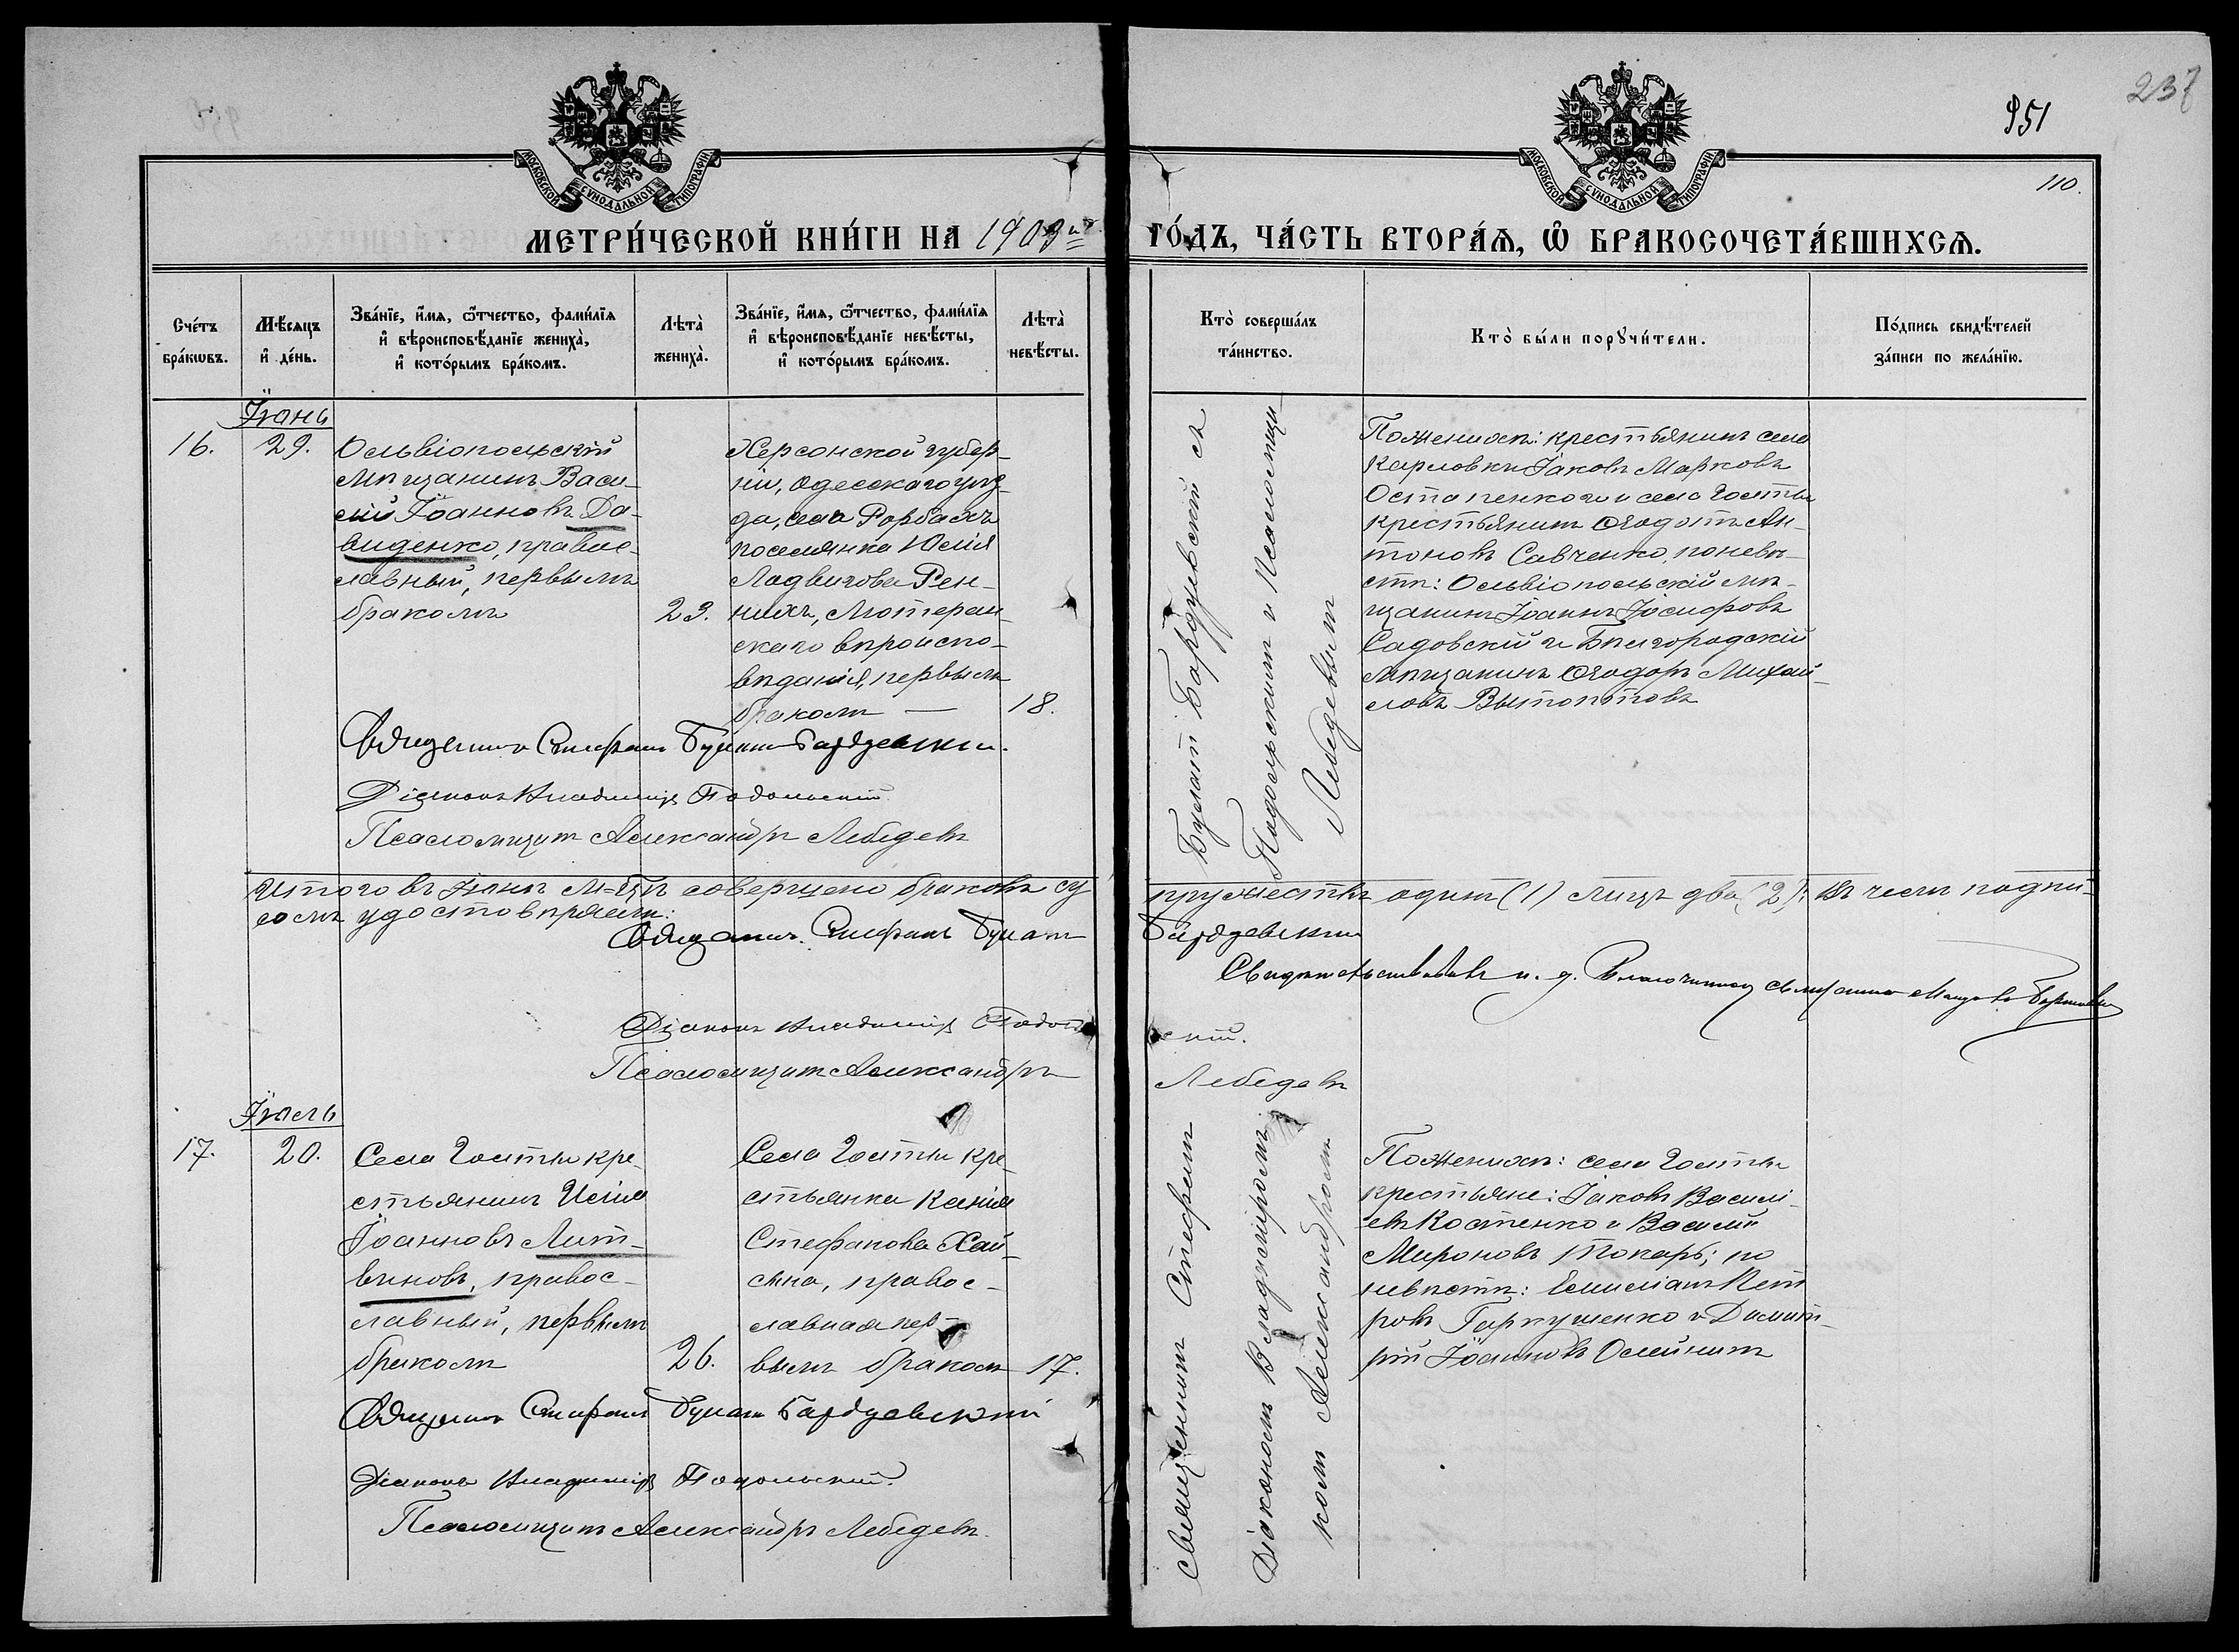 237
951
110.
МОСКОВСКОЙ СѴНОДАЛЬНОЙ ТИПОГРАФІИ
МОСКОВСКОЙ СѴНОДАЛЬНОЙ ТИПОГРАФІИ
МЕТРИ́ЧЕСКОЙ КНИ́ГИ НА 1903й
ГО́ДЪ, ЧА́СТЬ ВТОРА́Ѧ, Ѽ БРАКОСОЧЕТА́ВШИХСѦ.
Сче́тъ
бра́кѡвъ.
Мѣ́сяцъ
и҆ де́нь.
Зва́нїе, и҆́мя, ѻ҆́тчество, фами́лїя
и҆ вѣроисповѣ́данїе жениха̀,
и҆ кото́рымъ бра́комъ.
Лѣта̀
жениха̀.
Зва́нїе, и҆́мя, ѻ҆́тчество, фами́лїя
и҆ вѣроисповѣ́данїе невѣ́сты,
и҆ кото́рымъ бра́комъ.
Лѣта̀
невѣ́сты.
Кто̀ соверша́лъ
та́инство.
Кто̀ бы́ли порꙋчи́тели.
По́дпись свидѣ́телей
за́писи по жела́нїю.
Іюнь
16.
29.
Ольвіопольскій
мѣщанинъ Васи-
лій Іоанновъ Да-
виденко, правос-
лавный, первымъ
бракомъ
23.
Херсонской губер-
ніи, Одесскаго уѣз-
да, села Рорбахъ
поселянка Юлія
Лодвигова Рен-
нихъ, Лютеран-
скаго вѣроиспо-
вѣданія, первымъ
бракомъ —
18.
Булатъ Бардзевскій съ
Подольскимъ и Псаломщи-
Лебедевымъ
По женихѣ: крестьянинъ села
Карловки Іаковъ Марковъ
Остапенко и села Голты
крестьянинъ Ѳеодотъ Ан-
тоновъ Савченко, по невѣ-
стѣ: Ольвіопольскій мѣ-
щанинъ Іоаннъ Іосифовъ
Садовскій и Бѣлгородскій
мѣщанинъ Ѳеодоръ Михай-
ловъ Вытоптовъ
Священникъ Стефанъ Булатъ-Бардзевскій.
Діаконъ Владиміръ Подольскій
Псаломщикъ Александръ Лебедевъ
Итого въ Іюнѣ м-цѣ совершено браковъ су
пружествъ одинъ (1) лицъ два (2); въ чемъ подпи-
сомъ удостовѣряемъ:
Священникъ Стефанъ Булатъ
Бардзевскій
Свидѣтельствовалъ и. д. Благочиннаго священникъ
Діаконъ Владиміръ Подоль
скій.
Псаломщикъ Александръ
Лебедевъ
Іюль
17.
20.
Села Голты кре-
стьянинъ Илія
Іоанновъ Лит-
виновъ, правос-
лавный, первымъ
бракомъ
26.
Села Голты кре-
стьянка Ксенія
Стефанова Хай-
сына, правос-
лавная пер-
вымъ бракомъ
17.
Священникъ Стефанъ
Діакономъ Владиміромъ
комъ Александромъ
По женихѣ: села Голты
крестьяне: Іаковъ Василі-
евъ Костенко и Василій
Мироновъ Токарь; по
невѣстѣ: Емиліанъ Пет
ровъ Гаркушенко и Димит-
рій Іоанновъ Олейникъ
Священникъ Стефанъ Булатъ Бардзевскій
Діаконъ Владиміръ Подольскій.
Псаломщикъ Александръ Лебедевъ.